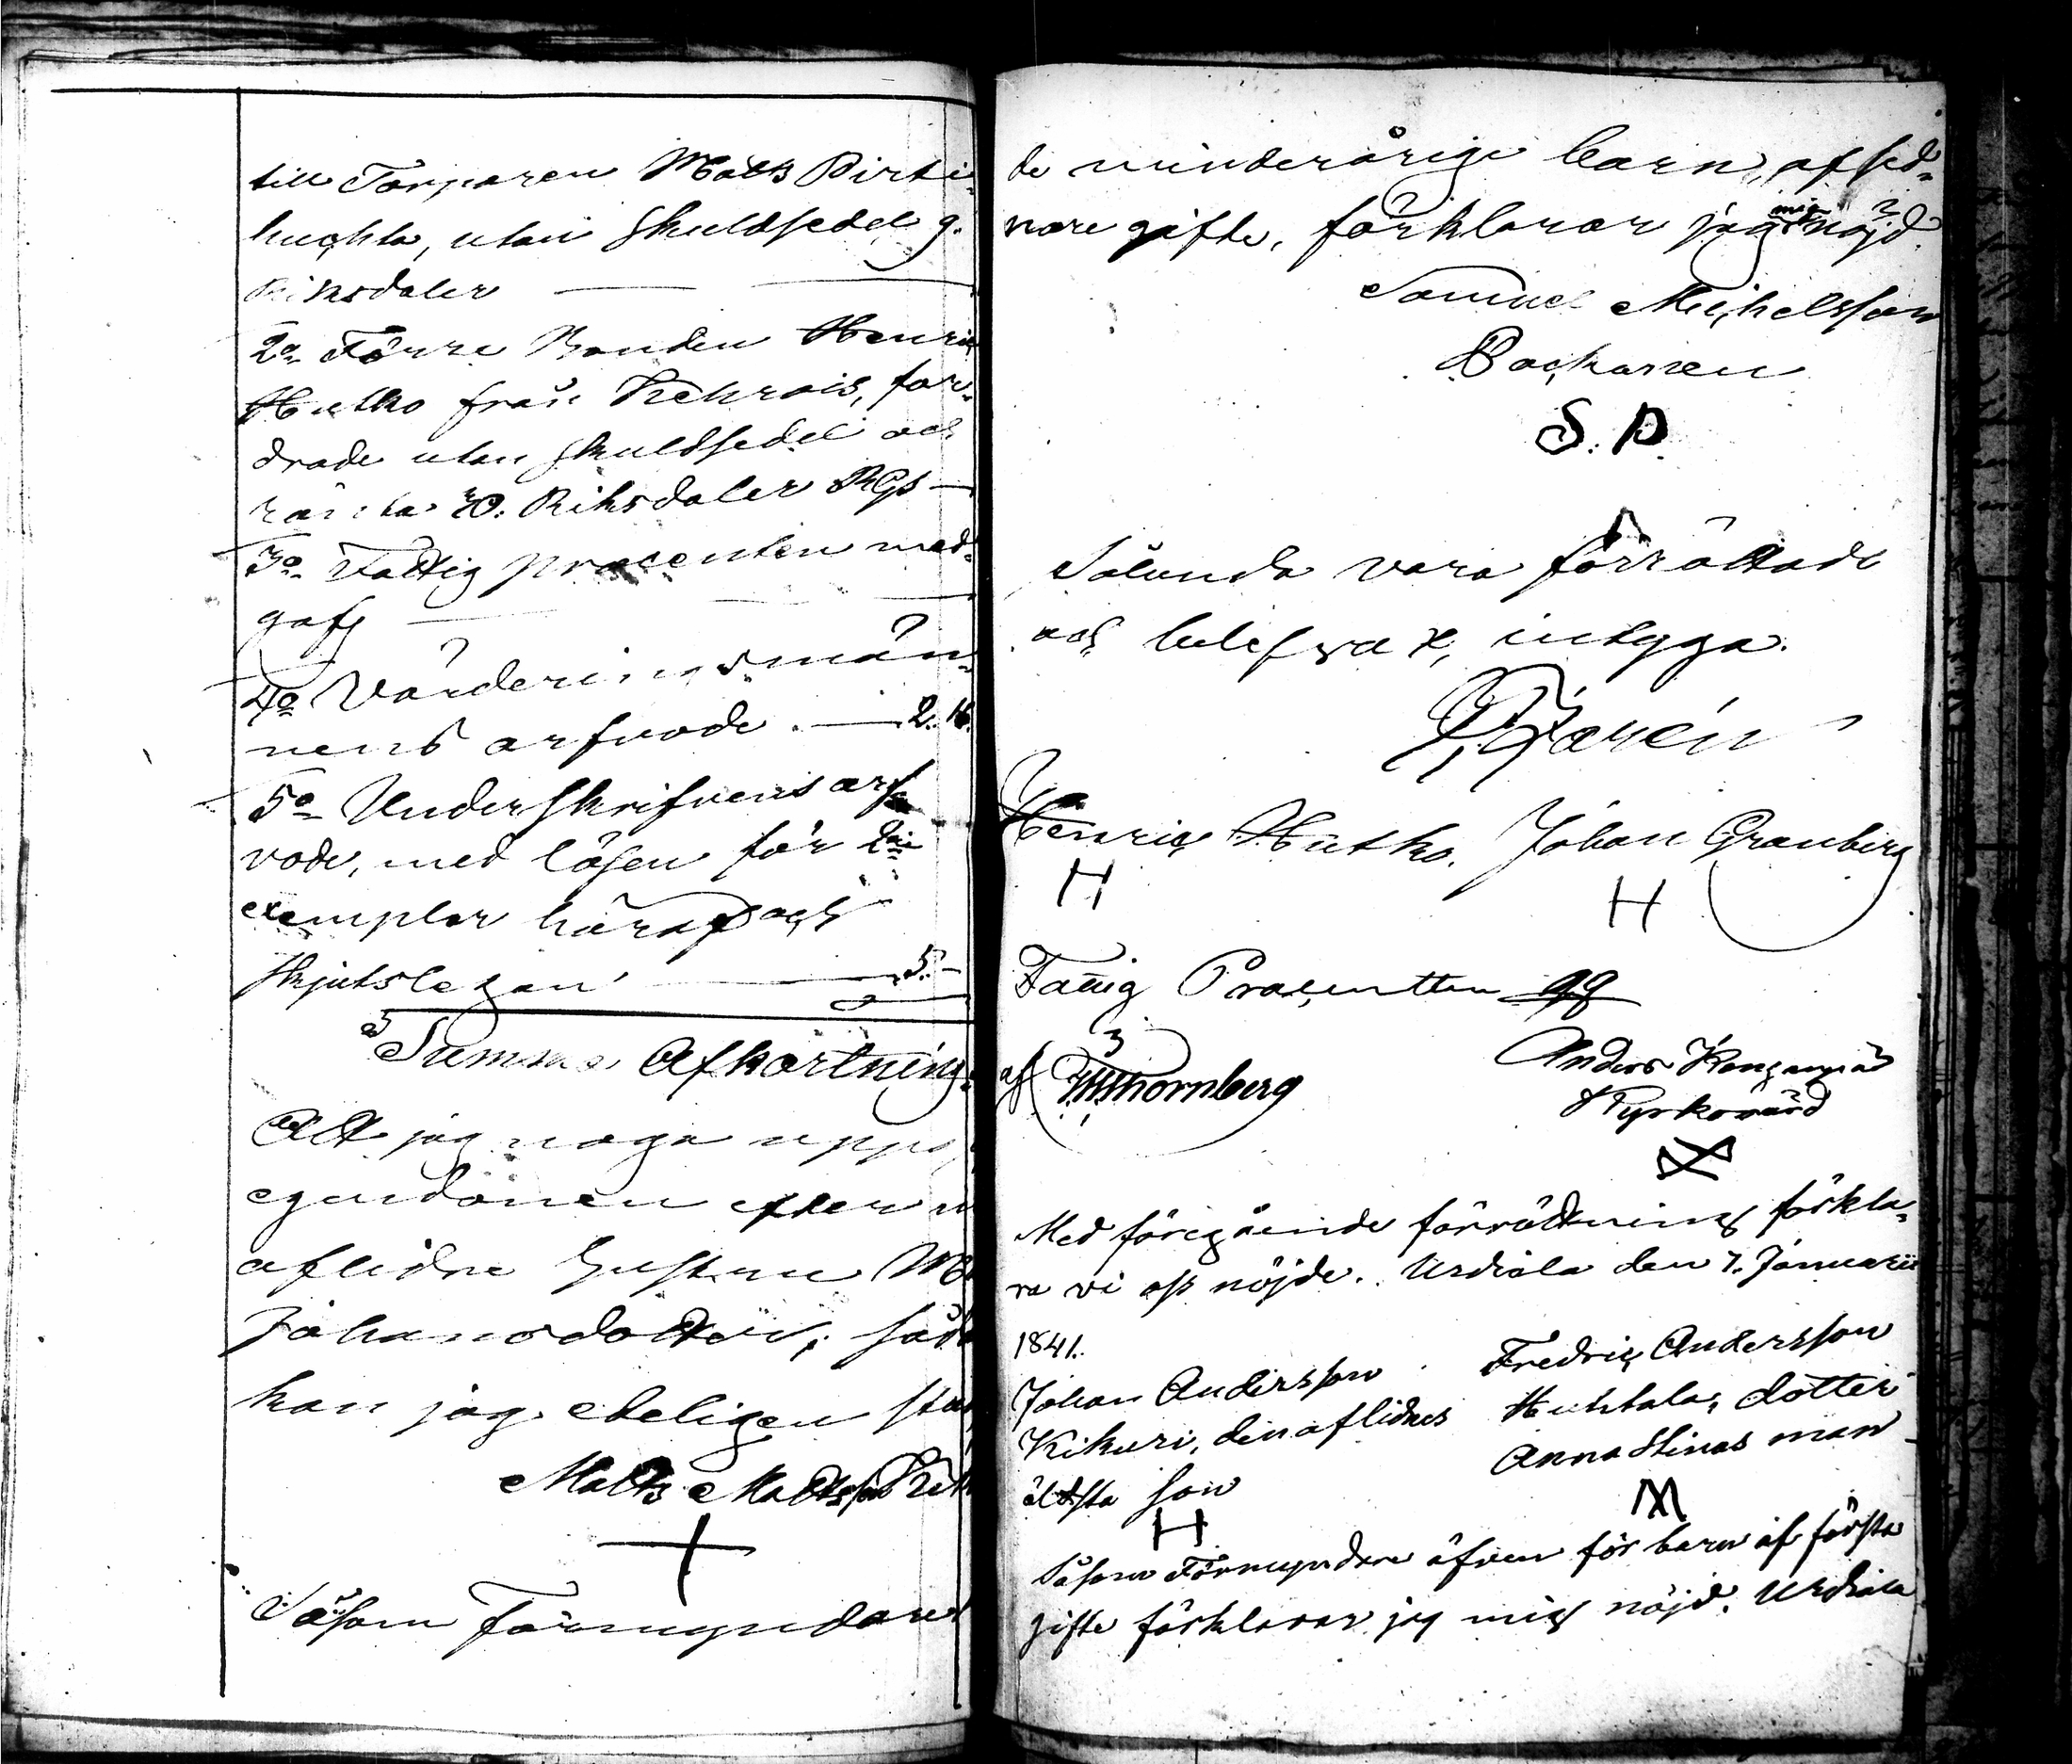 till Torparen Matts Pirti-
huchta, utan skuldsedel 9.
Riksdaler
2o. Förre Bonden Henric
Hutko från Kehrois, for-
drade utan skuldsedel och
ränta 20. Riksdaler RGs
3o. Fattig procenten med-
gafs
4o Värderingsmän-
nens arfvode. 2. 16.
5o Underskrifvens arf-
vode, med lösen för 2ne
exemplar häraf och
skjutslegan 5. -
Summa Afkortning.
Att jag noga uppg
egendomen efter m
aflidne hustru
Johansdotter, såd
kan jag edeligen
Matts Mattsson
Såsom Förmyndare
de minderårige barn, af sed-
nare gifte, förklarar jag mig nöjd.
Samuel Michelsson
Packanen
S. P.
Sålunda vara förrättadt
och belefvadt, intyga.
Henric Hutko. Johan Granberg
H H
Fattig Procentten qq
af Thornberg
Anders
Kyrkovärd
Med föregående förrättning förkla-
ra vi oss nöjde. Urdiala den 7. Januarii
1841.
Johan Andersson
Kikuri, den aflidnes
äldsta son
H
Fredric Andersson
Huhtala, dotter
Anna Stinas man
Såsom Förmyndare äfven för barn af första
gifte förklarar jag mig nöjd. Urdiala